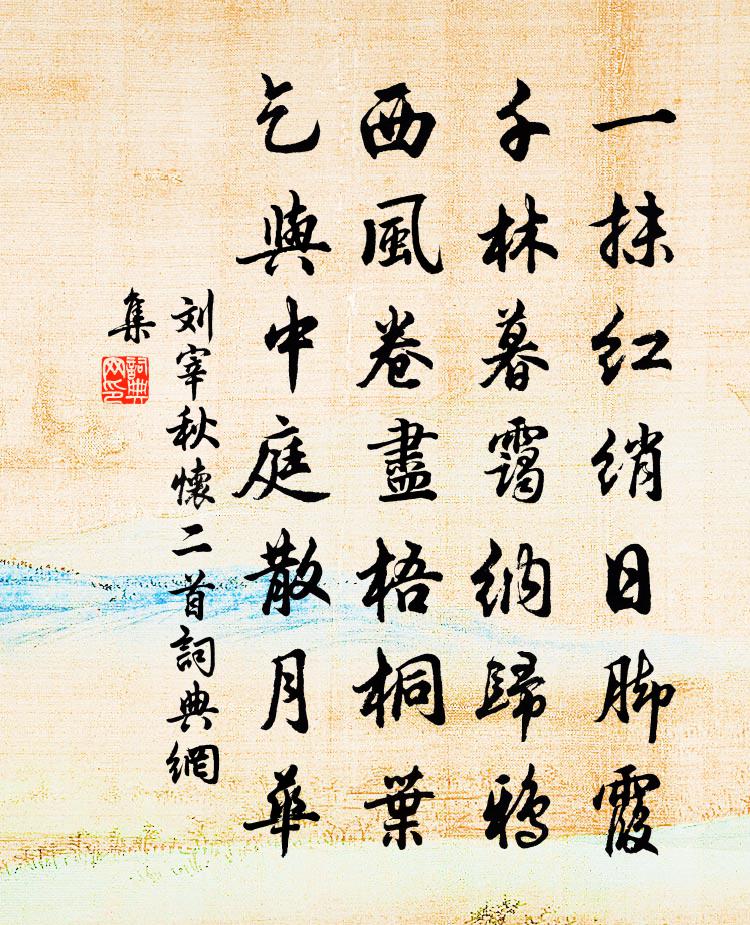 一抹紅綃日脚霞
千林暮靄納歸鴉
西風卷盡梧桐葉
乞與中庭散月華
刘宰秋懷二首詞典網
集
詞典
网印